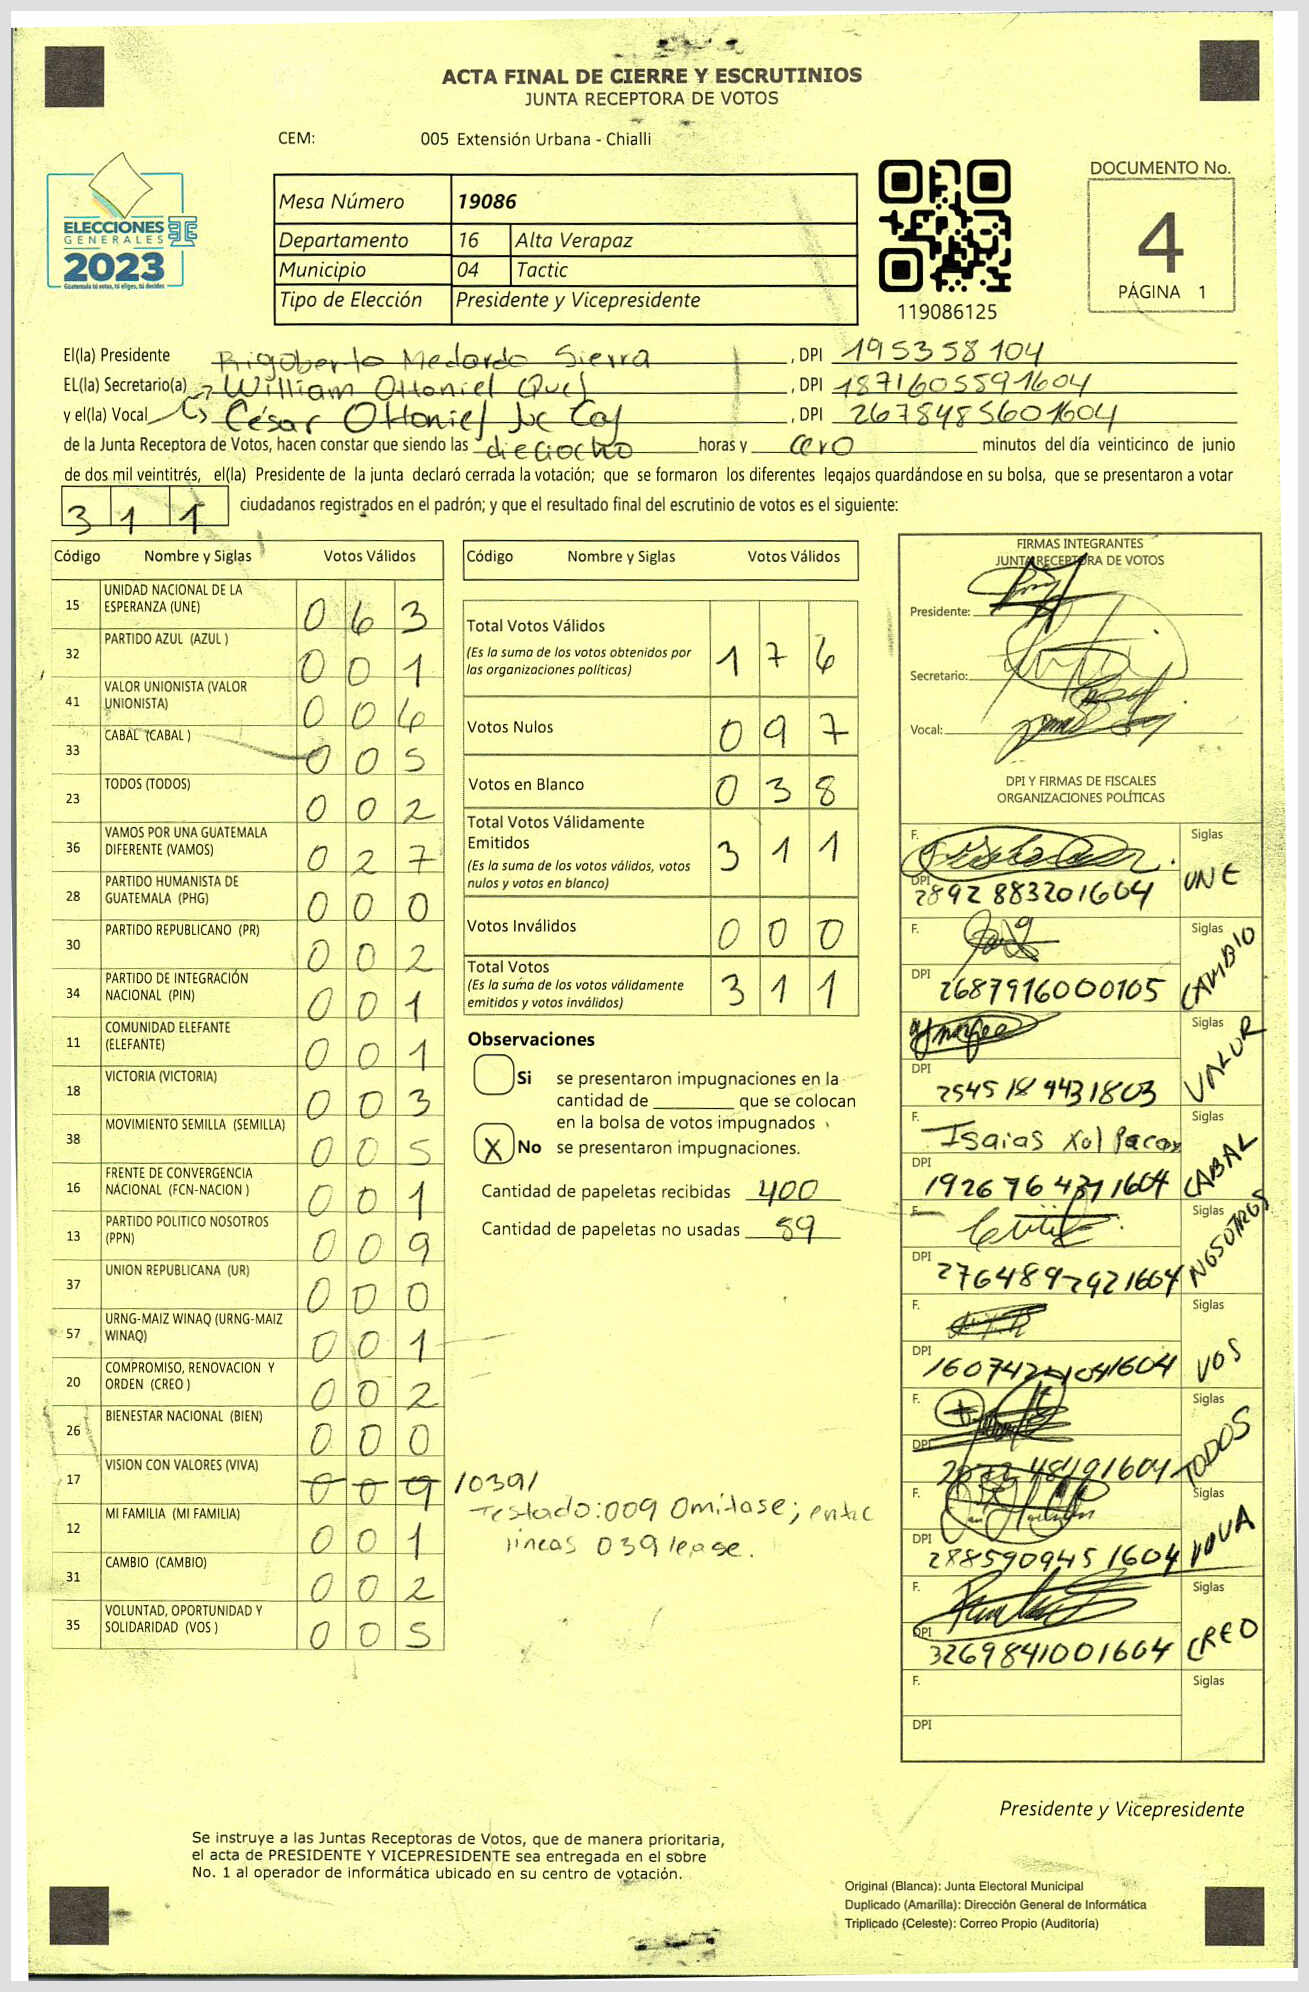 ACTA FINAL DE CIERRE Y ESCRUTINIOS
JUNTA RECEPTORA DE VOTOS
CEM: 005 Extensión Urbana - Chialli
ELECCIONES
GENERALES
2023
Guatemala tú votas, tú eliges, tú decides
Mesa Número 19086
Departamento 16 Alta Verapaz
Municipio 04 Tactic
Tipo de Elección Presidente y Vicepresidente
119086125
DOCUMENTO No.
4
PÁGINA 1
El(la) Presidente Rigoberto Medardo Sierra , DPI 195358104
EL(la) Secretario(a) William Ottoniel Quej , DPI 1871605591604
y el(la) Vocal César Ottoniel Juc Caj , DPI 2678485601604
de la Junta Receptora de Votos, hacen constar que siendo las dieciocho horas y cero minutos del día veinticinco de junio
de dos mil veintitrés, el(la) Presidente de la junta declaró cerrada la votación; que se formaron los diferentes legajos guardándose en su bolsa, que se presentaron a votar
311 ciudadanos registrados en el padrón; y que el resultado final del escrutinio de votos es el siguiente:
Código Nombre y Siglas Votos Válidos
15 UNIDAD NACIONAL DE LA ESPERANZA (UNE) 063
32 PARTIDO AZUL (AZUL ) 001
41 VALOR UNIONISTA (VALOR UNIONISTA) 006
33 CABAL (CABAL ) 005
23 TODOS (TODOS) 002
36 VAMOS POR UNA GUATEMALA DIFERENTE (VAMOS) 027
28 PARTIDO HUMANISTA DE GUATEMALA (PHG) 000
30 PARTIDO REPUBLICANO (PR) 002
34 PARTIDO DE INTEGRACIÓN NACIONAL (PIN) 001
11 COMUNIDAD ELEFANTE (ELEFANTE) 001
18 VICTORIA (VICTORIA) 003
38 MOVIMIENTO SEMILLA (SEMILLA) 005
16 FRENTE DE CONVERGENCIA NACIONAL (FCN-NACION ) 001
13 PARTIDO POLITICO NOSOTROS (PPN) 009
37 UNION REPUBLICANA (UR) 000
57 URNG-MAIZ WINAQ (URNG-MAIZ WINAQ) 001
20 COMPROMISO, RENOVACION Y ORDEN (CREO ) 002
26 BIENESTAR NACIONAL (BIEN) 000
17 VISION CON VALORES (VIVA) 009 /039/
12 MI FAMILIA (MI FAMILIA) 001
31 CAMBIO (CAMBIO) 002
35 VOLUNTAD, OPORTUNIDAD Y SOLIDARIDAD (VOS ) 005
Testado: 009 Omitase; entre
líneas 039 lease.
Código Nombre y Siglas Votos Válidos
Total Votos Válidos 176
(Es la suma de los votos obtenidos por
las organizaciones políticas)
Votos Nulos 097
Votos en Blanco 038
Total Votos Válidamente
Emitidos 311
(Es la suma de los votos válidos, votos
nulos y votos en blanco)
Votos Inválidos 000
Total Votos 311
(Es la suma de los votos válidamente
emitidos y votos inválidos)
Observaciones
Si se presentaron impugnaciones en la
cantidad de ________ que se colocan
en la bolsa de votos impugnados
X No se presentaron impugnaciones.
Cantidad de papeletas recibidas 400
Cantidad de papeletas no usadas 89
FIRMAS INTEGRANTES
JUNTA RECEPTORA DE VOTOS
Presidente:
Secretario:
Vocal:
DPI Y FIRMAS DE FISCALES
ORGANIZACIONES POLÍTICAS
F. Siglas
DPI 2892883201604 UNE
F. Siglas
DPI 2687916000105 CAMBIO
Siglas
DPI 2545189431803 VALOR
F. Isaias Xol Pacay Siglas
DPI CABAL
F. Siglas
DPI 2764897921604 NOSOTROS
F. Siglas
DPI VOS
F. Siglas
DPI TODOS
F. Siglas
DPI 2885909451604
F. Siglas
DPI 3269841001604 CREO
F. Siglas
DPI
Presidente y Vicepresidente
Se instruye a las Juntas Receptoras de Votos, que de manera prioritaria,
el acta de PRESIDENTE Y VICEPRESIDENTE sea entregada en el sobre
No. 1 al operador de informática ubicado en su centro de votación.
Original (Blanca): Junta Electoral Municipal
Duplicado (Amarilla): Dirección General de Informática
Triplicado (Celeste): Correo Propio (Auditoría)